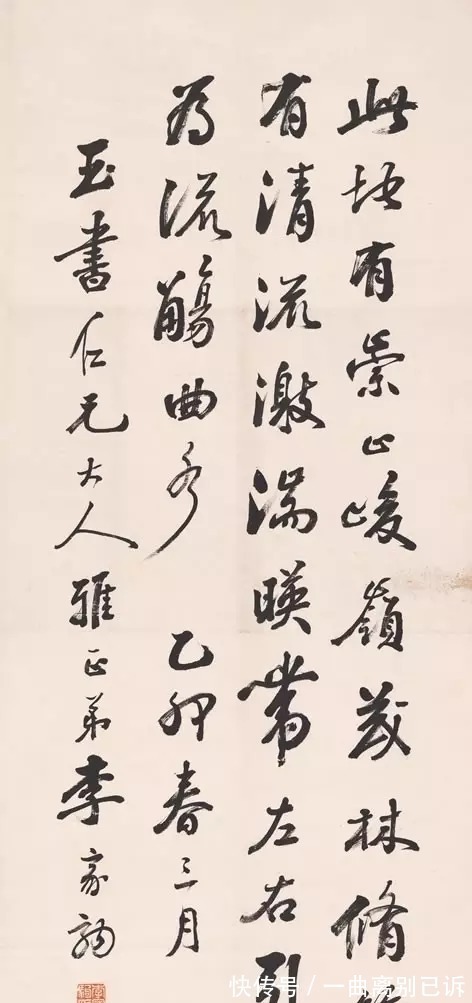 此地有崇山峻嶺茂林脩
有清流激湍暎帶左右
為流觴曲水 乙卯春三月
玉書仁兄大人雅正弟李家駒
快传号/一曲离别已诉